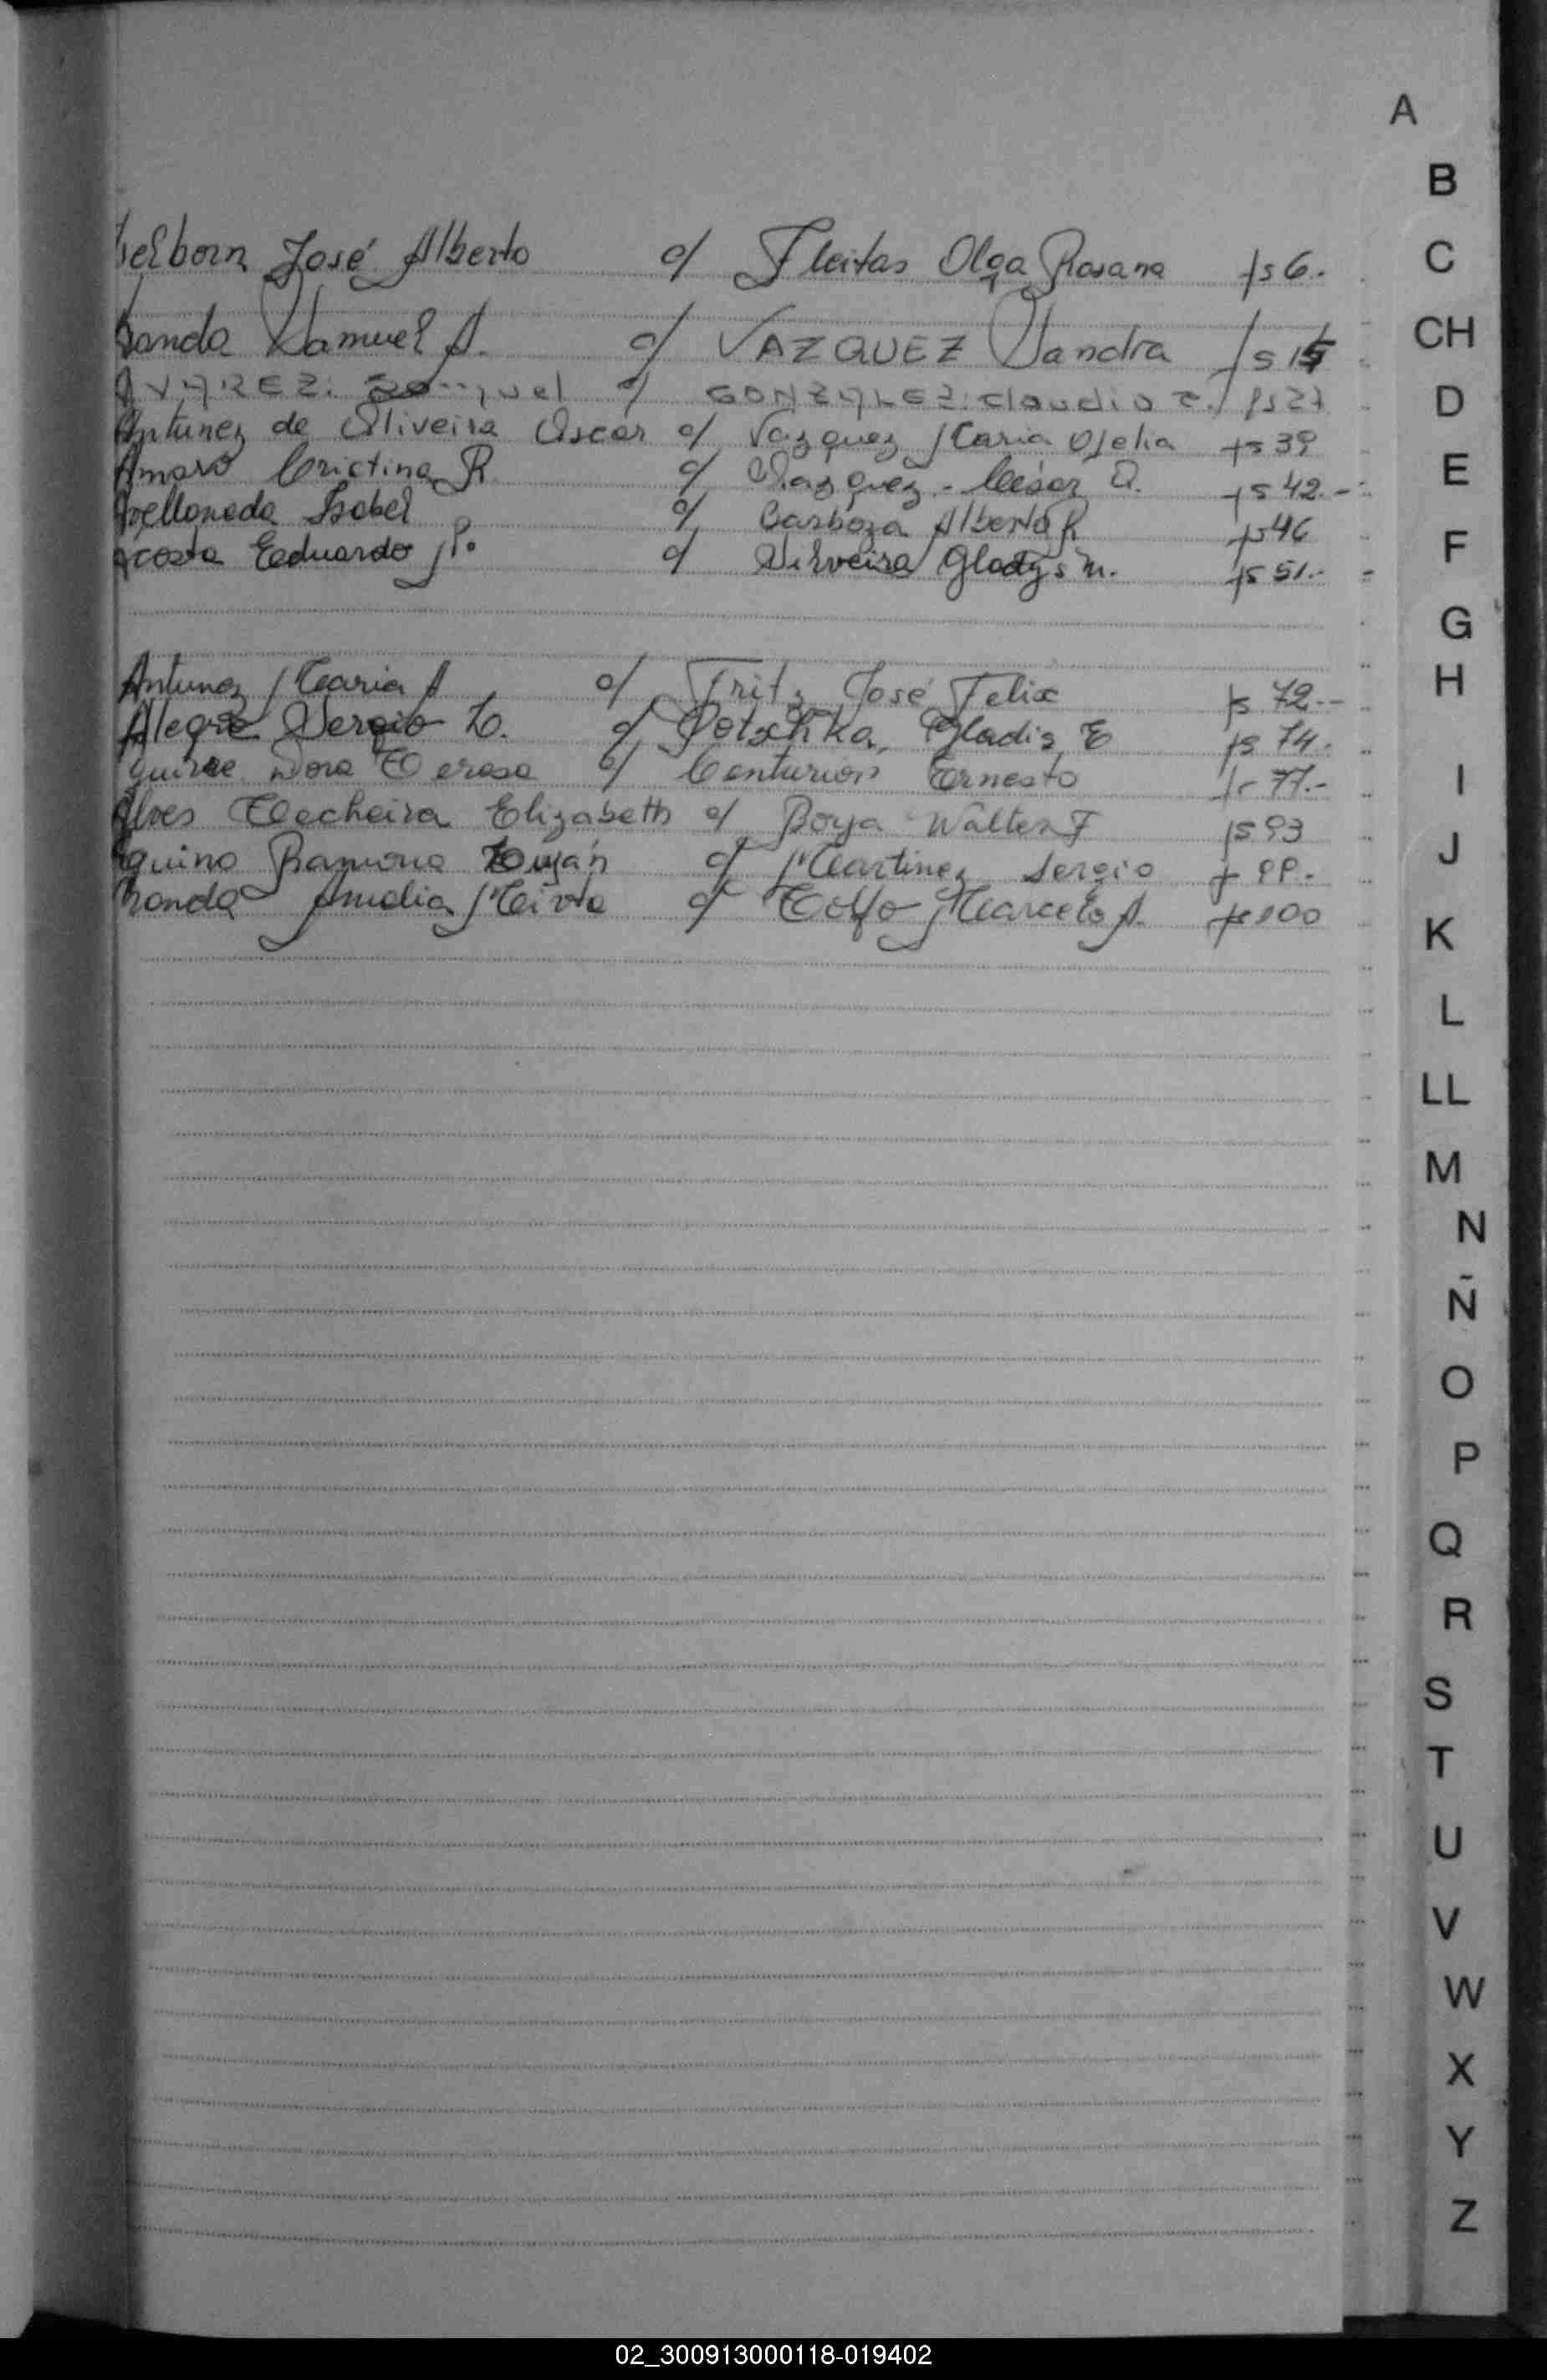 José Alberto c/ Fleitas Olga Rosana fs 6.-
Samuel A. c/ VAZQUEZ Sandra fs 15
c/ GONZALEZ: claudio fs 27
Antunez de Oliveira Oscar c/ Vazquez Maria Ofelia fs 39
Amaro Cristina R c/ Vazquez - César fs 42.-
Avellaneda Isabel c/ Barboza Alberto R fs 46
Acosta Eduardo P. c/ Silveira Gladys M. fs 51.-
Antunez Maria A c/ Fritz José Felix fs 72.-
Alegre Sergio L. c/ Potschka, Gladis E fs 74.
Dora Teresa c/ Centurion Ernesto fs 77.-
Alves Elizabeth c/ Borja Walter F fs 93
Aquino Ramona Luján c/ Martinez Sergio
Amalia Mirta c/ Marcelo A. fs 100
A
B
C
CH
D
E
F
G
H
I
J
K
L
LL
M
N
Ñ
O
P
Q
R
S
T
U
V
W
X
Y
Z
02_300913000118-019402